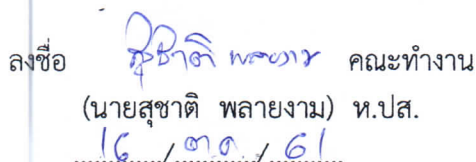 ลงชื่อ สุชาติ พลายงาม คณะทำงาน
(นายสุชาติ พลายงาม) ห.ปส.
16/ต.ค./61